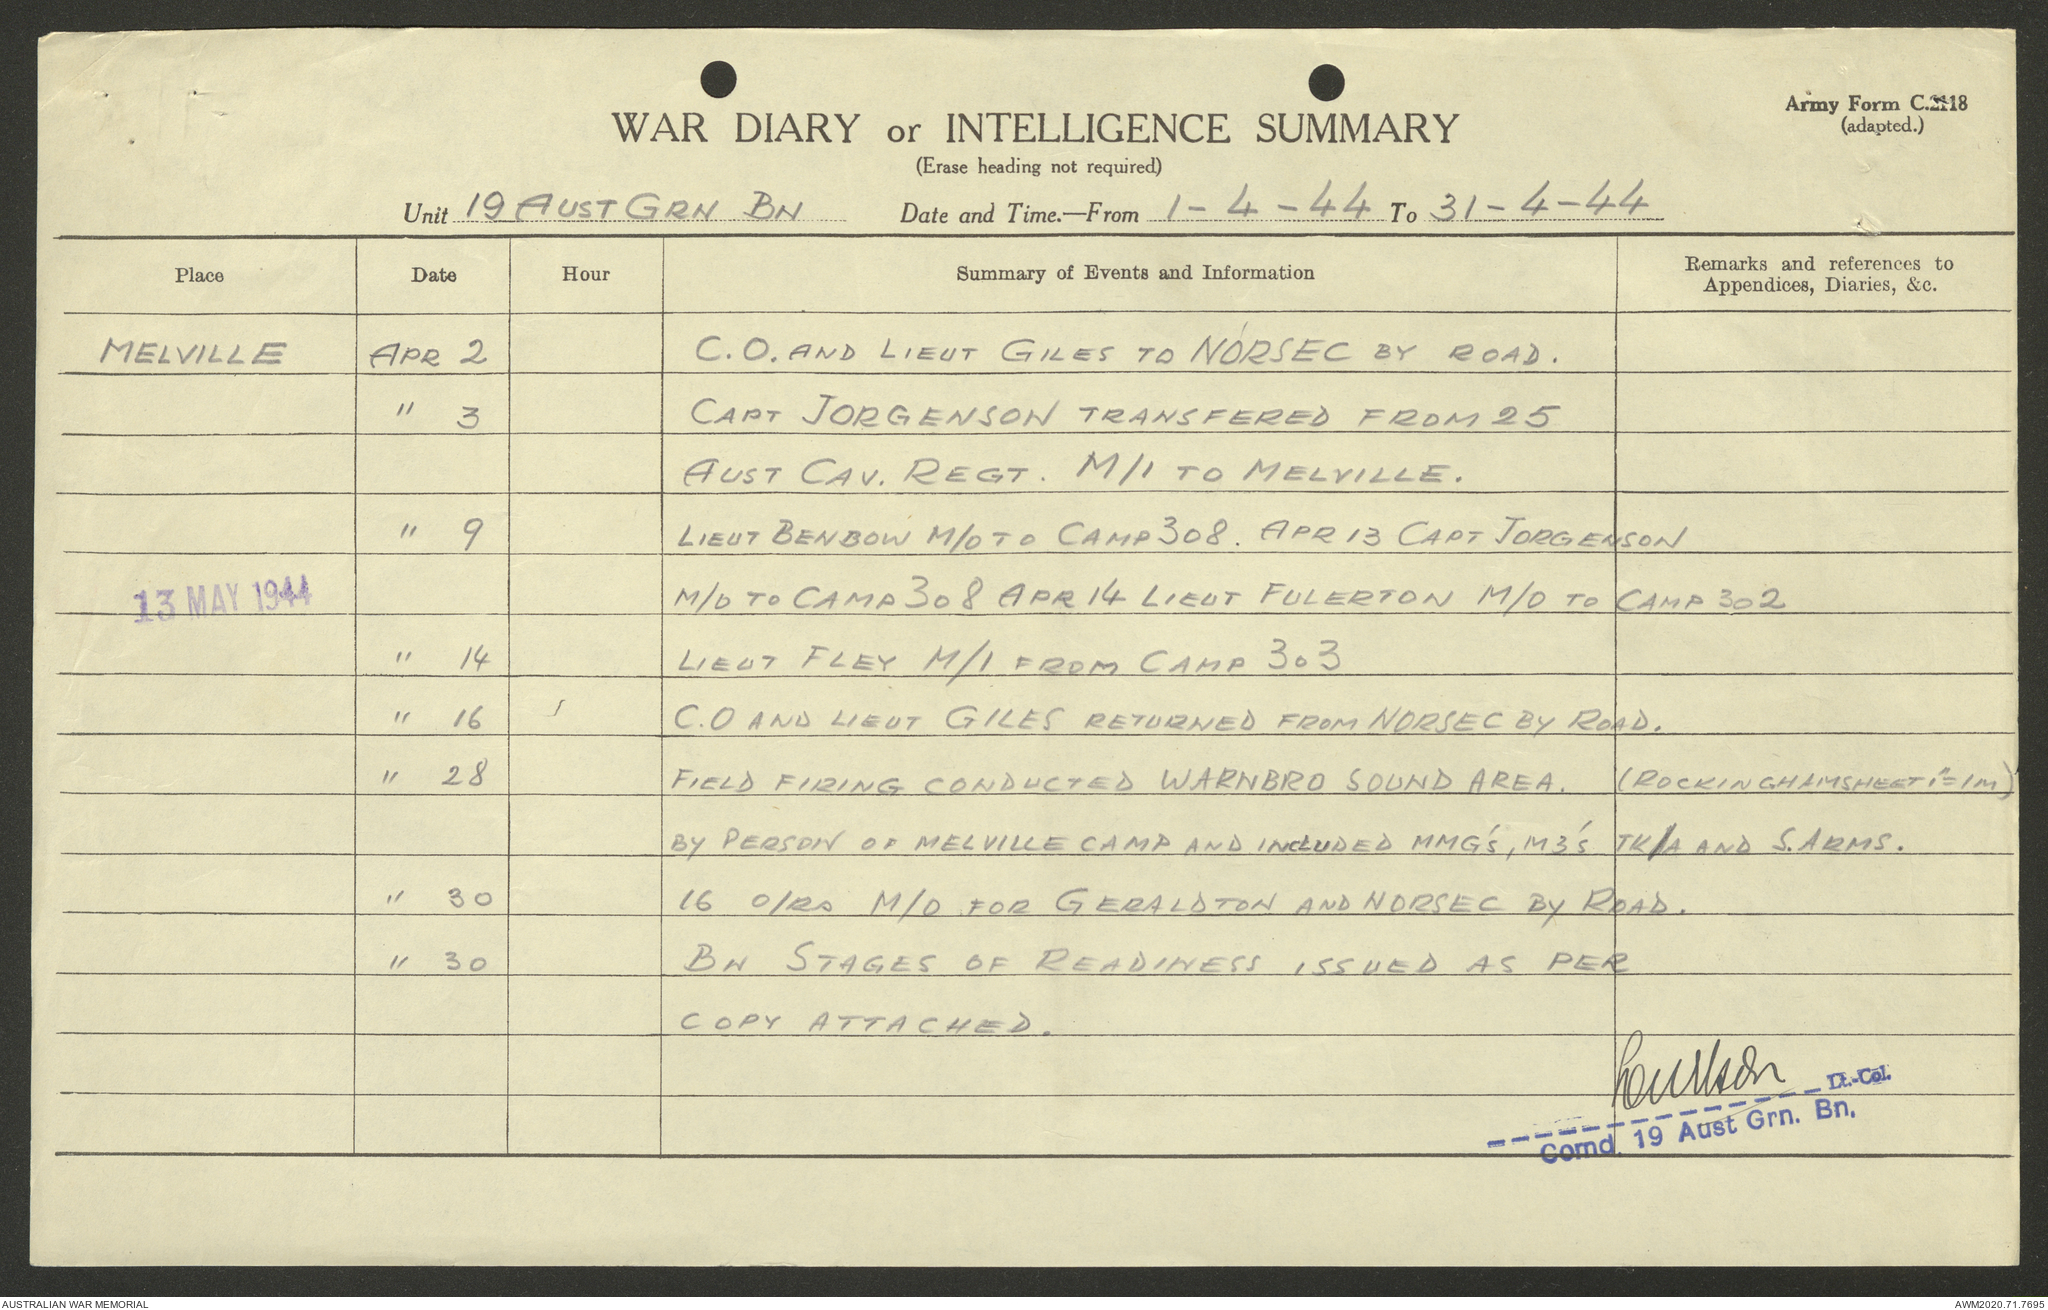 Army Form C.2118
(adapted.)
WAR DIARY or INTELLIGENCE SUMMARY
(Erase heading not required)
Unit 19 AUST GRN BN Date and Time.—From 1-4-44 To 31-4-44
Place Date Hour Summary of Events and Information Remarks and references to Appendices, Diaries, &c.
MELVILLE APR 2 C.O. AND LIEUT GILES TO NORSEC BY ROAD.
" 3 CAPT JORGENSON TRANSFERED FROM 25
AUST CAV. REGT. M/I TO MELVILLE.
" 9 LIEUT BENBOW M/O TO CAMP 308. APR 13 CAPT JORGENSON
13 MAY 1944 M/O TO CAMP 308 APR 14 LIEUT FULERTON M/O TO CAMP 302
" 14 LIEUT FLEY M/I FROM CAMP 303
" 16 C.O AND LIEUT GILES RETURNED FROM NORSEC BY ROAD.
" 28 FIELD FIRING CONDUCTED WARNBRO SOUND AREA. (ROCKINGHAM SHEET 1"=1M)
BY PERSON OF MELVILLE CAMP AND INCLUDED MMG's, M3's TK/A AND S.ARMS.
" 30 16 O/RS M/O FOR GERALDTON AND NORSEC BY ROAD.
" 30 BN STAGES OF READINESS ISSUED AS PER
COPY ATTACHED.
Lt.-Col.
Comd. 19 Aust Grn. Bn.
AUSTRALIAN WAR MEMORIAL AWM2020.71.7695